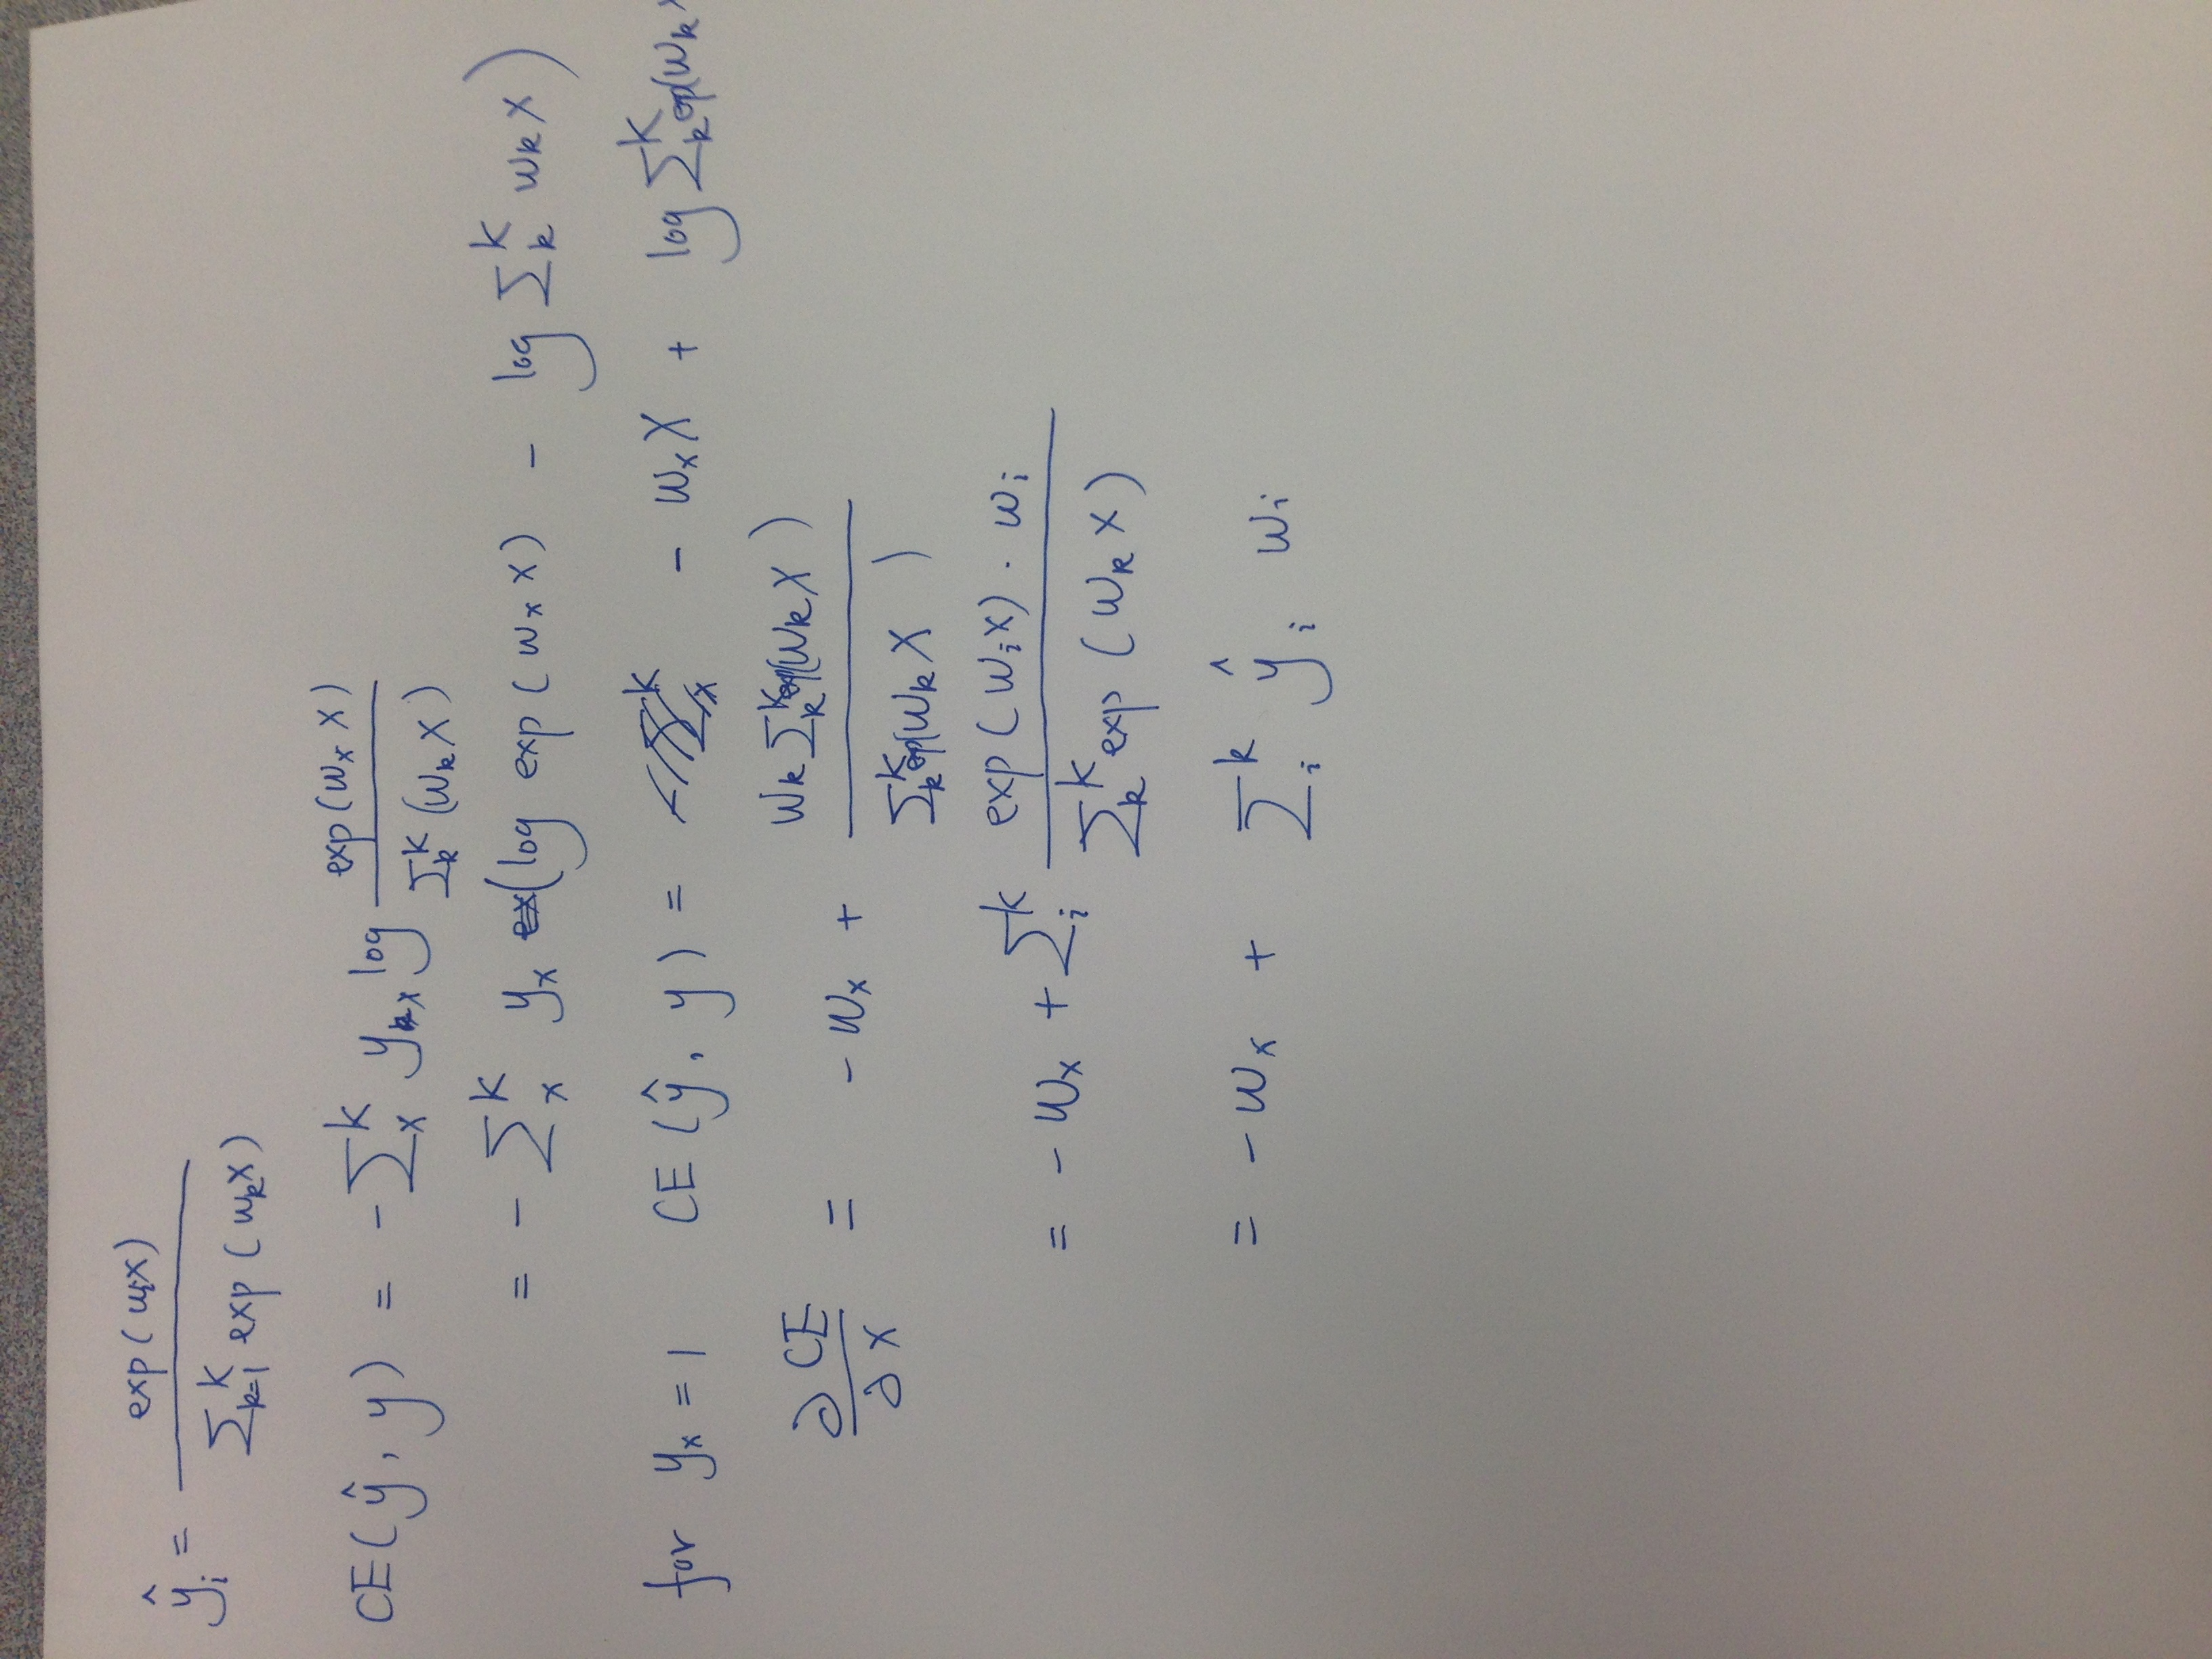 ŷ_i = exp(w_i x) / Σ_{k=1}^{K} exp(w_k x)
CE(ŷ, y) = -Σ_x^K y_x log exp(w_x x) / Σ_k^K (w_k x)
= -Σ_x^K y_x (log exp(w_x x) - log Σ_k^K w_k x)
for y_x = 1 CE(ŷ, y) = - w_x x + log Σ_k^K exp(w_k x
∂CE / ∂x = -w_x + w_k Σ_k^K exp(w_k x) / Σ_k^K exp(w_k x)
= -w_x + Σ_i^K exp(w_i x) · w_i / Σ_k^K exp(w_k x)
= -w_x + Σ_i^k ŷ_i w_i